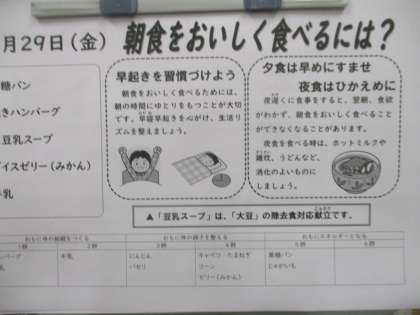 月29日(金) 朝食をおいしく食べるには?
糖パン
きハンバーグ
豆乳スープ
イスゼリー(みかん)
牛乳
早起きを習慣づけよう
朝食をおいしく食べるためには、
朝の時間にゆとりをもつことが大切
です。早寝早起きを心がけ、生活リ
ズムを整えましょう。
夕食は早めにすませ
夜食はひかえめに
夜遅くに食事をすると、翌朝、食欲
がわかず、朝食をおいしく食べること
ができなくなることがあります。
夜食を食べる時は、ホットミルクや
雑炊、うどんなど、
消化のよいものに
しましょう。
▲「豆乳スープ」は、「大豆」の除去食対応献立です。
おもに体の組織をつくる おもに体の調子を整える おもにエネルギーとなる
1群 2群 3群 4群 5群 6群
ンバーグ 牛乳 にんじん キャベツ たまねぎ 黒糖パン
乳 パセリ コーン じゃがいも
ゼリー(みかん)